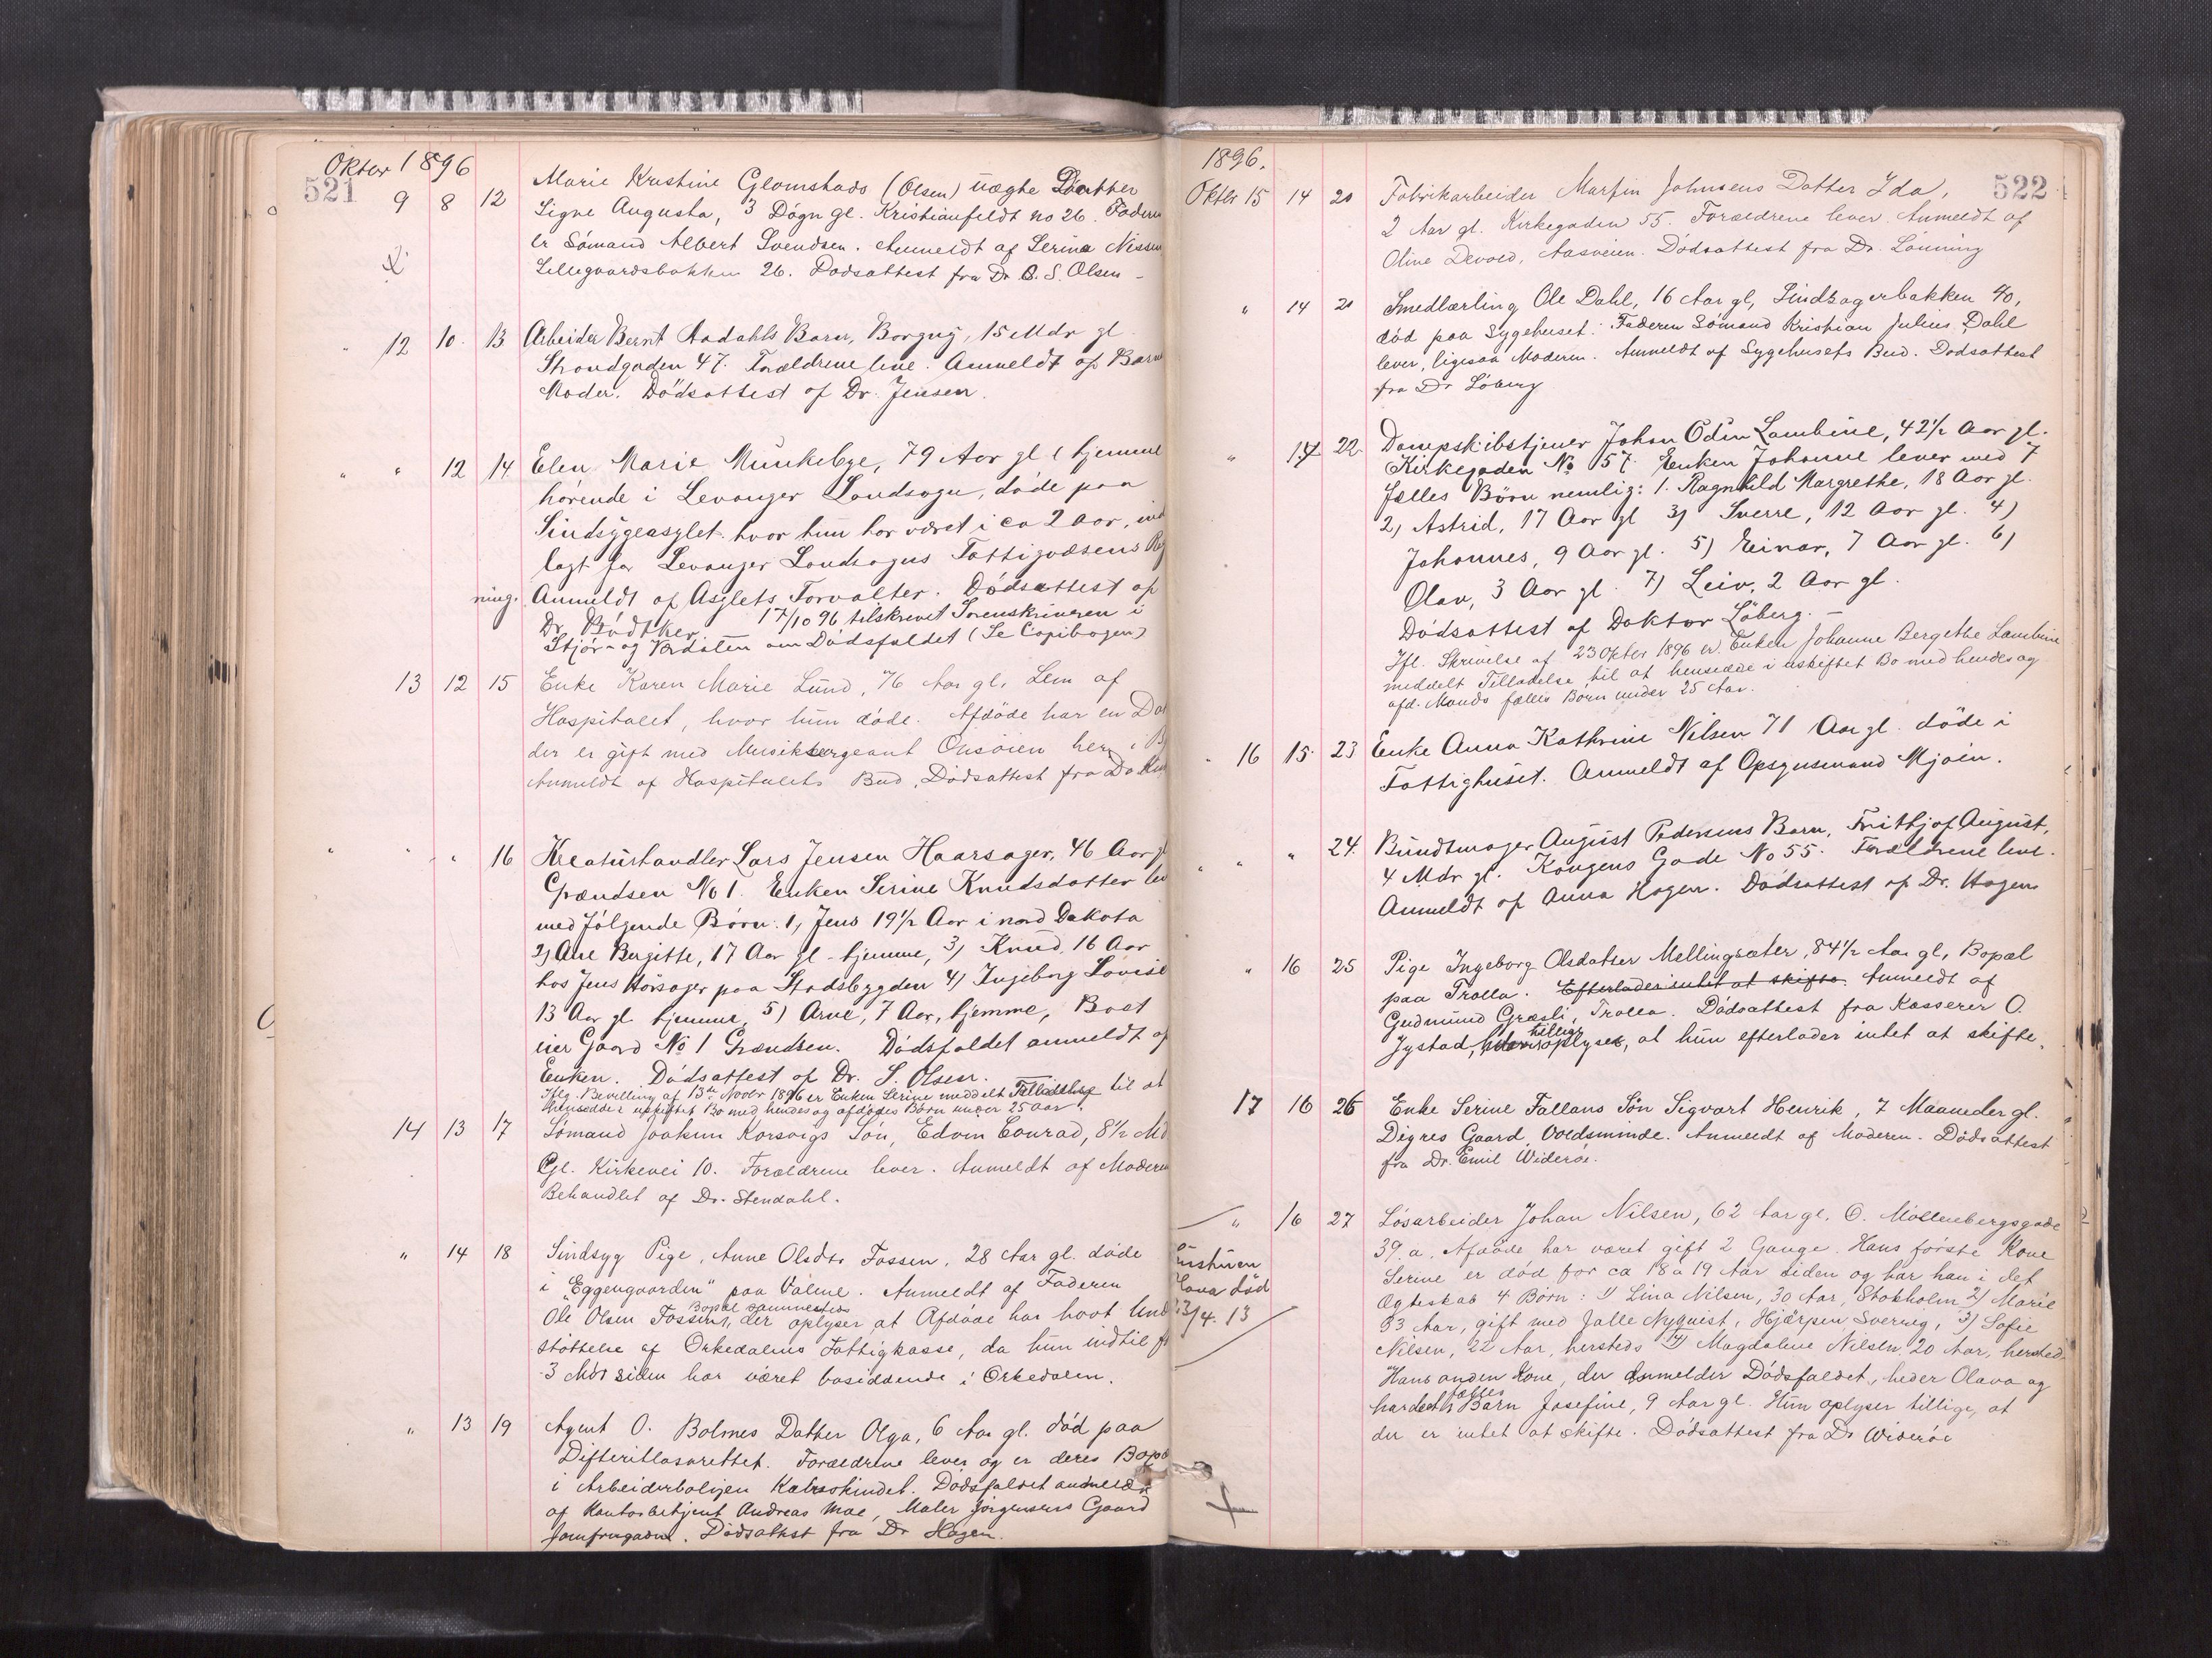 Oktbr 1896
521
9 8 12 Marie Kristine Glomstads (Olsen) uægte Datter
Signe Augusta, 3 Døgn gl. Kristianfeldt no 26. Faderen
er Sømand Albert Svendsen. Anmeldt af Serina Nissen
Lillegaardsbakken 26. Dødsattest fra Dr. O. S. Olsen -
" 12 10. 13 Arbeider Bernt Aadahls Barn, Borgny, 15 Mdr gl
Strandgaden 47. Forældrene leve. Anmeldt af Barnets
Moder. Dødsattest af Dr. Jensen.
" " 12 14 Elen Marie Munkebye, 79 Aar gl, hjemme
hørende i Levanger Landsogn, døde paa
Sindsygeasylet hvor hun har været i ca 2 Aar, ind
lagt for Levanger Landsogns Fattigvæsens Reg
ning. Anmeldt af Asylets Forvalter. Dødsattest af
Dr. Bødtker. 17/10 96 tilskrevet Sorenskriveren i
Stjør- og Værdalen om Dødsfaldet (Se Copibogen)
13 12 15 Enke Karen Marie Lund, 76 Aar gl, Lem af
Hospitalet, hvor hun døde. Afdøde har en Dat
der er gift med Musiksergeant Onsøien her i B
Anmeldt af Hospitalets Bud. Dødsattest fra Dr
" " " 16 Kreaturhandler Lars Jensen Haarsager, 46 Aar gl
Grændsen No 1. Enken Serine Knudsdatter lev
med følgende Børn: 1, Jens 19½ Aar i nord Dakota
2) Ane Bergitte, 17 Aar gl - hjemme, 3) Knud, 16 Aar
hos Jens Hørsager paa Stadsbygden 4) Ingeborg Lovise
13 Aar gl hjemme, 5) Arne, 7 Aar, hjemme, Boet
eier Gaard No 1 Grændsen. Dødsfaldet anmeldt af
Enken. Dødsattest af Dr. S. Olsen.
Iflg. Bevilling af 13de Novbr 1896 er Enken Serine meddelt Tilladelse til at
hensidde i uskiftet Bo med hendes og afdødes Børn under 25 Aar.
14 13 17 Sømand Joakim Korsvigs Søn, Edvin Conrad, 8½ Md
Gl. Kirkevei 10. Forældrene lever. Anmeldt af Moderen
Behandlet af Dr. Stendahl.
" 14 18 Sindsyg Pige, Anne Olsdtr Fossen, 28 Aar gl. døde
i "Eggengaarden" paa Valene. Anmeldt af Faderen
Ole Olsen Fossen, Bopæl sammesteds der oplyser at Afdøde har havt Und
støttelse af Orkedalens Fattigkasse, da hun indtil f
3 Mdr siden har været bosiddende i Orkedalen.
" 13 19 Agent O. Bolmes Datter Olga, 6 Aar gl. død paa
Difteritlasarettet. Forældrene lever og er deres Bopæ
i Arbeiderboligen Kalvskindet. Dødsfaldet anmeldt
af Kontorbetjent Andreas Moe, Maler Jørgensens Gaard
Jomfrugaden. Dødsattest fra Dr Hagen.
1896.
522
Oktbr 15 14 20 Fabrikarbeider Martin Johnsens Datter Ida,
2 Aar gl. Kirkegaden 55. Forældrene lever. Anmeldt af
Oline Devold, Aasveien. Dødsattest fra Dr. Lønning
" 14 21 Smedlærling Ole Dahl, 16 Aar gl, Sindsagerbakken 40,
død paa Sygehuset. Faderen Sømand Kristian Julius Dahl
lever, ligesaa Moderen. Anmeldt af Sygehusets Bud. Dødsattest
fra Dr Løberg
" 14 22 Dampskibstjener Johan Odin Lambine, 42½ Aar gl.
Kirkegaden No 57. Enken Johanne lever med 7
fælles Børn nemlig: 1. Ragnhild Margrethe, 18 Aar gl.
2) Astrid, 17 Aar gl 3) Sverre, 12 Aar gl. 4)
Johannes, 9 Aar gl. 5) Einar, 7 Aar gl. 6)
Olav, 3 Aar gl. 7) Leiv, 2 Aar gl.
Dødsattest af Doktor Løberg. -
Ifl. Skrivelse af 23 Oktbr 1896 er Enken Johanne Bergethe Lambine
meddelt Tilladelse til at hensidde i uskiftet Bo med hendes og
afd. Mands fælles Børn under 25 Aar.
" 16 15. 23 Enke Anna Kathrine Nilsen 71 Aar gl. døde i
Fattighuset. Anmeldt af Opsynsmand Mjøen.
" " 24. Bundtmager August Pedersens Barn, Frithjof August,
4 Mdr gl. Kongens Gade No 55. Forældrene leve.
Anmeldt af Anna Hagen. Dødsattest af Dr. Hagen
" 16 25 Pige Ingeborg Olsdatter Mellingsæter, 84½ Aar gl, Bopæl
paa Trolla. Efterlader intet at skifte. Anmeldt af
Gudmund Græsli, Trolla. Dødsattest fra Kasserer O.
Jystad, tillige oplyses, at hun efterlader intet at skifte.
17 16 26 Enke Serine Fallans Søn Sigvart Henrik, 7 Maaneder gl.
Digres Gaard, Voldsminde. Anmeldt af Moderen. Dødsattest
fra Dr. Emil Widerøe.
" 16 27 Løsarbeider Johan Nilsen, 62 Aar gl. O. Møllenbergsgade
39.a. Afdøde har været gift 2 Gange. Hans første Kone
Serine er død for ca 18 a 19 Aar siden og har han i det
Ægteskab 4 Børn: 1) Lina Nilsen, 30 Aar, Stokholm 2) Marie
33 Aar, gift med Jalle Nyquist, Hjärpen, Sverrig, 3) Sofie
Nilsen, 22 Aar, hersteds 4) Magdalene Nilsen, 20 Aar, hersted.
Hans anden Kone, der anmelder Dødsfaldet, heder Olava og
har de et fælles Barn Josefine, 9 Aar gl. Hun oplyser tillige, at
der er intet at skifte. Dødsattest fra Dr Widerøe
Olava død
13/4. 13